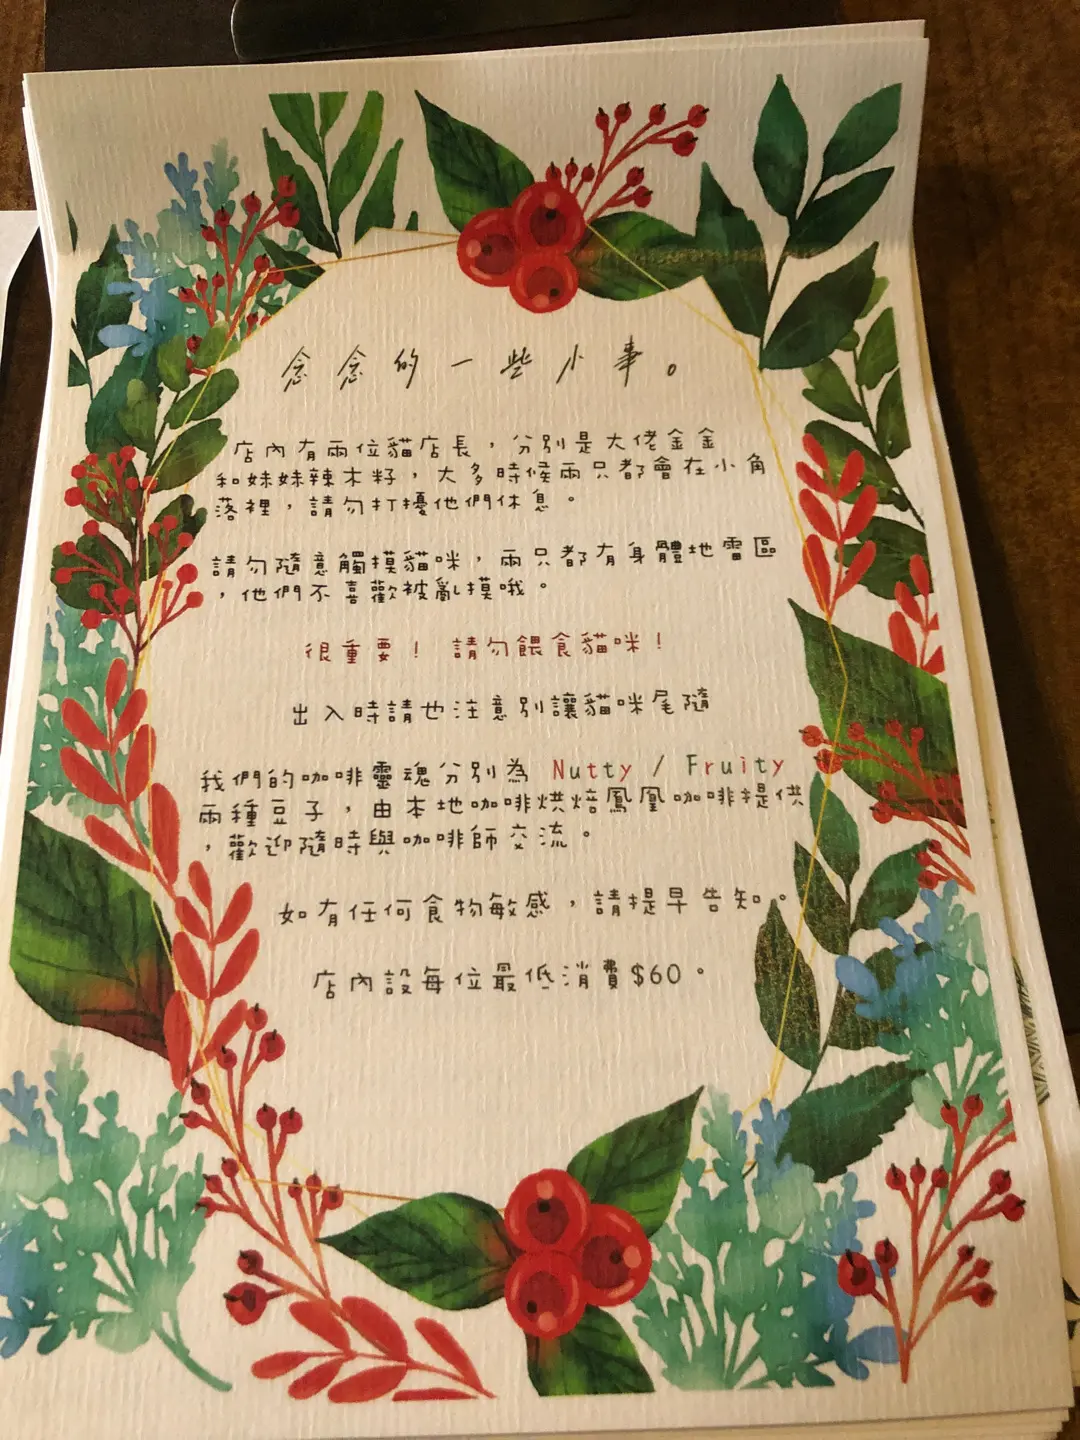 念念的一些小事。
店內有兩位貓店長，分別是大佬金金
和妹妹辣木籽，大多時候兩只都會在小角
落裡，請勿打擾他們休息。
請勿隨意觸摸貓咪，兩只都有身體地雷區
，他們不喜歡被亂摸哦。
很重要！請勿餵食貓咪！
出入時請也注意別讓貓咪尾隨
我們的咖啡靈魂分別為 Nutty / Fruity
兩種豆子，由本地咖啡烘焙鳳凰咖啡提供
，歡迎隨時與咖啡師交流。
如有任何食物敏感，請提早告知。
店內設每位最低消費$60。